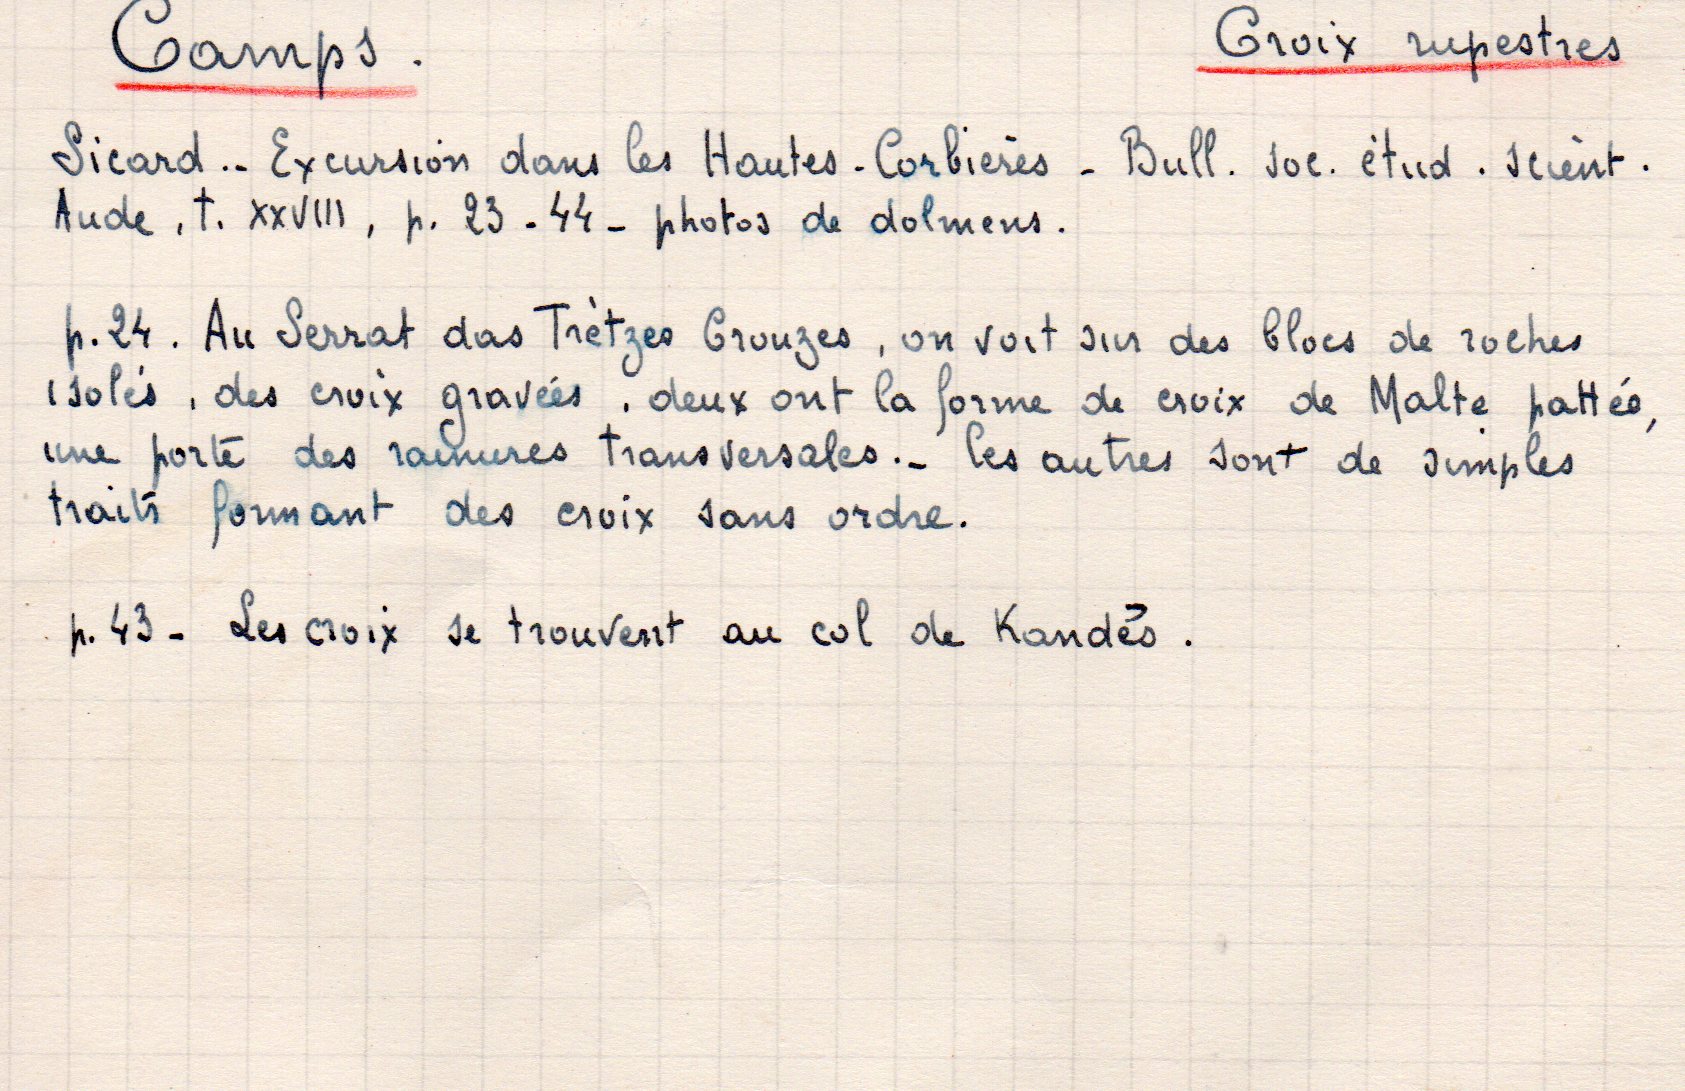 Camps.
Croix rupestres
Sicard.- Excursion dans les Hautes-Corbières - Bull. soc. étud. scient.
Aude, t. XXVIII, p. 23-44 - photos de dolmens.
p.24. Au Serrat das Trètzes Crouzes, on voit sur des blocs de roches
isolés, des croix gravées, deux ont la forme de croix de Malte pattée,
une porte des rainures transversales.- les autres sont de simples
traits formant des croix sans ordre.
p.43 - Les croix se trouvent au col de Kandès.